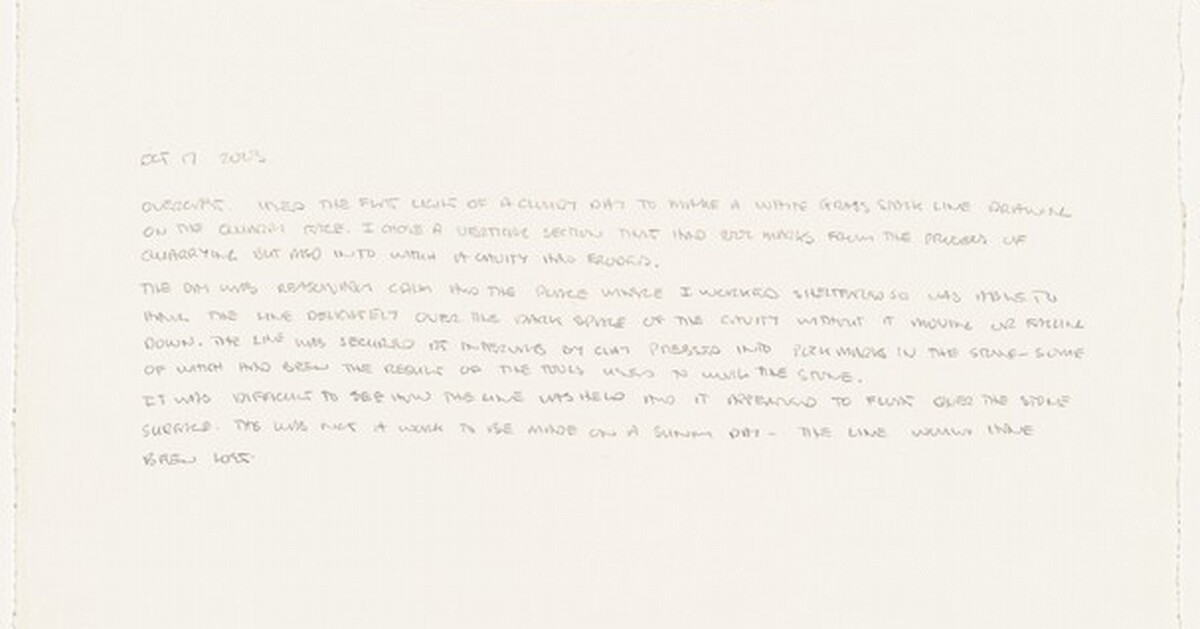 OCT 17 2003
OVERCAST. USED THE FLAT LIGHT OF A CLOUDY DAY TO MAKE A WHITE GRASS STALK LINE DRAWING
ON THE QUARRY FACE. I CHOSE A VERTICAL SECTION THAT HAD MARKS FROM THE PROCESS OF
QUARRYING BUT ALSO INTO WHICH A CAVITY HAD ERODED.
THE DAY WAS REASONABLY CALM AND THE PLACE WHERE I WORKED SHELTERED SO WAS ABLE TO
HANG THE LINE DELICATELY OVER THE DARK SPACE OF THE CAVITY WITHOUT IT MOVING OR FALLING
DOWN. THE LINE WAS SECURED AT INTERVALS BY CLAY PRESSED INTO MARKS IN THE STONE - SOME
OF WHICH HAD BEEN THE RESULT OF THE TOOLS USED TO WORK THE STONE.
IT WAS DIFFICULT TO SEE HOW THE LINE WAS HELD AND IT APPEARED TO FLOAT OVER THE STONE
SURFACE. THIS WAS NOT A WORK TO BE MADE ON A SUNNY DAY - THE LINE WOULD HAVE
BEEN LOST.